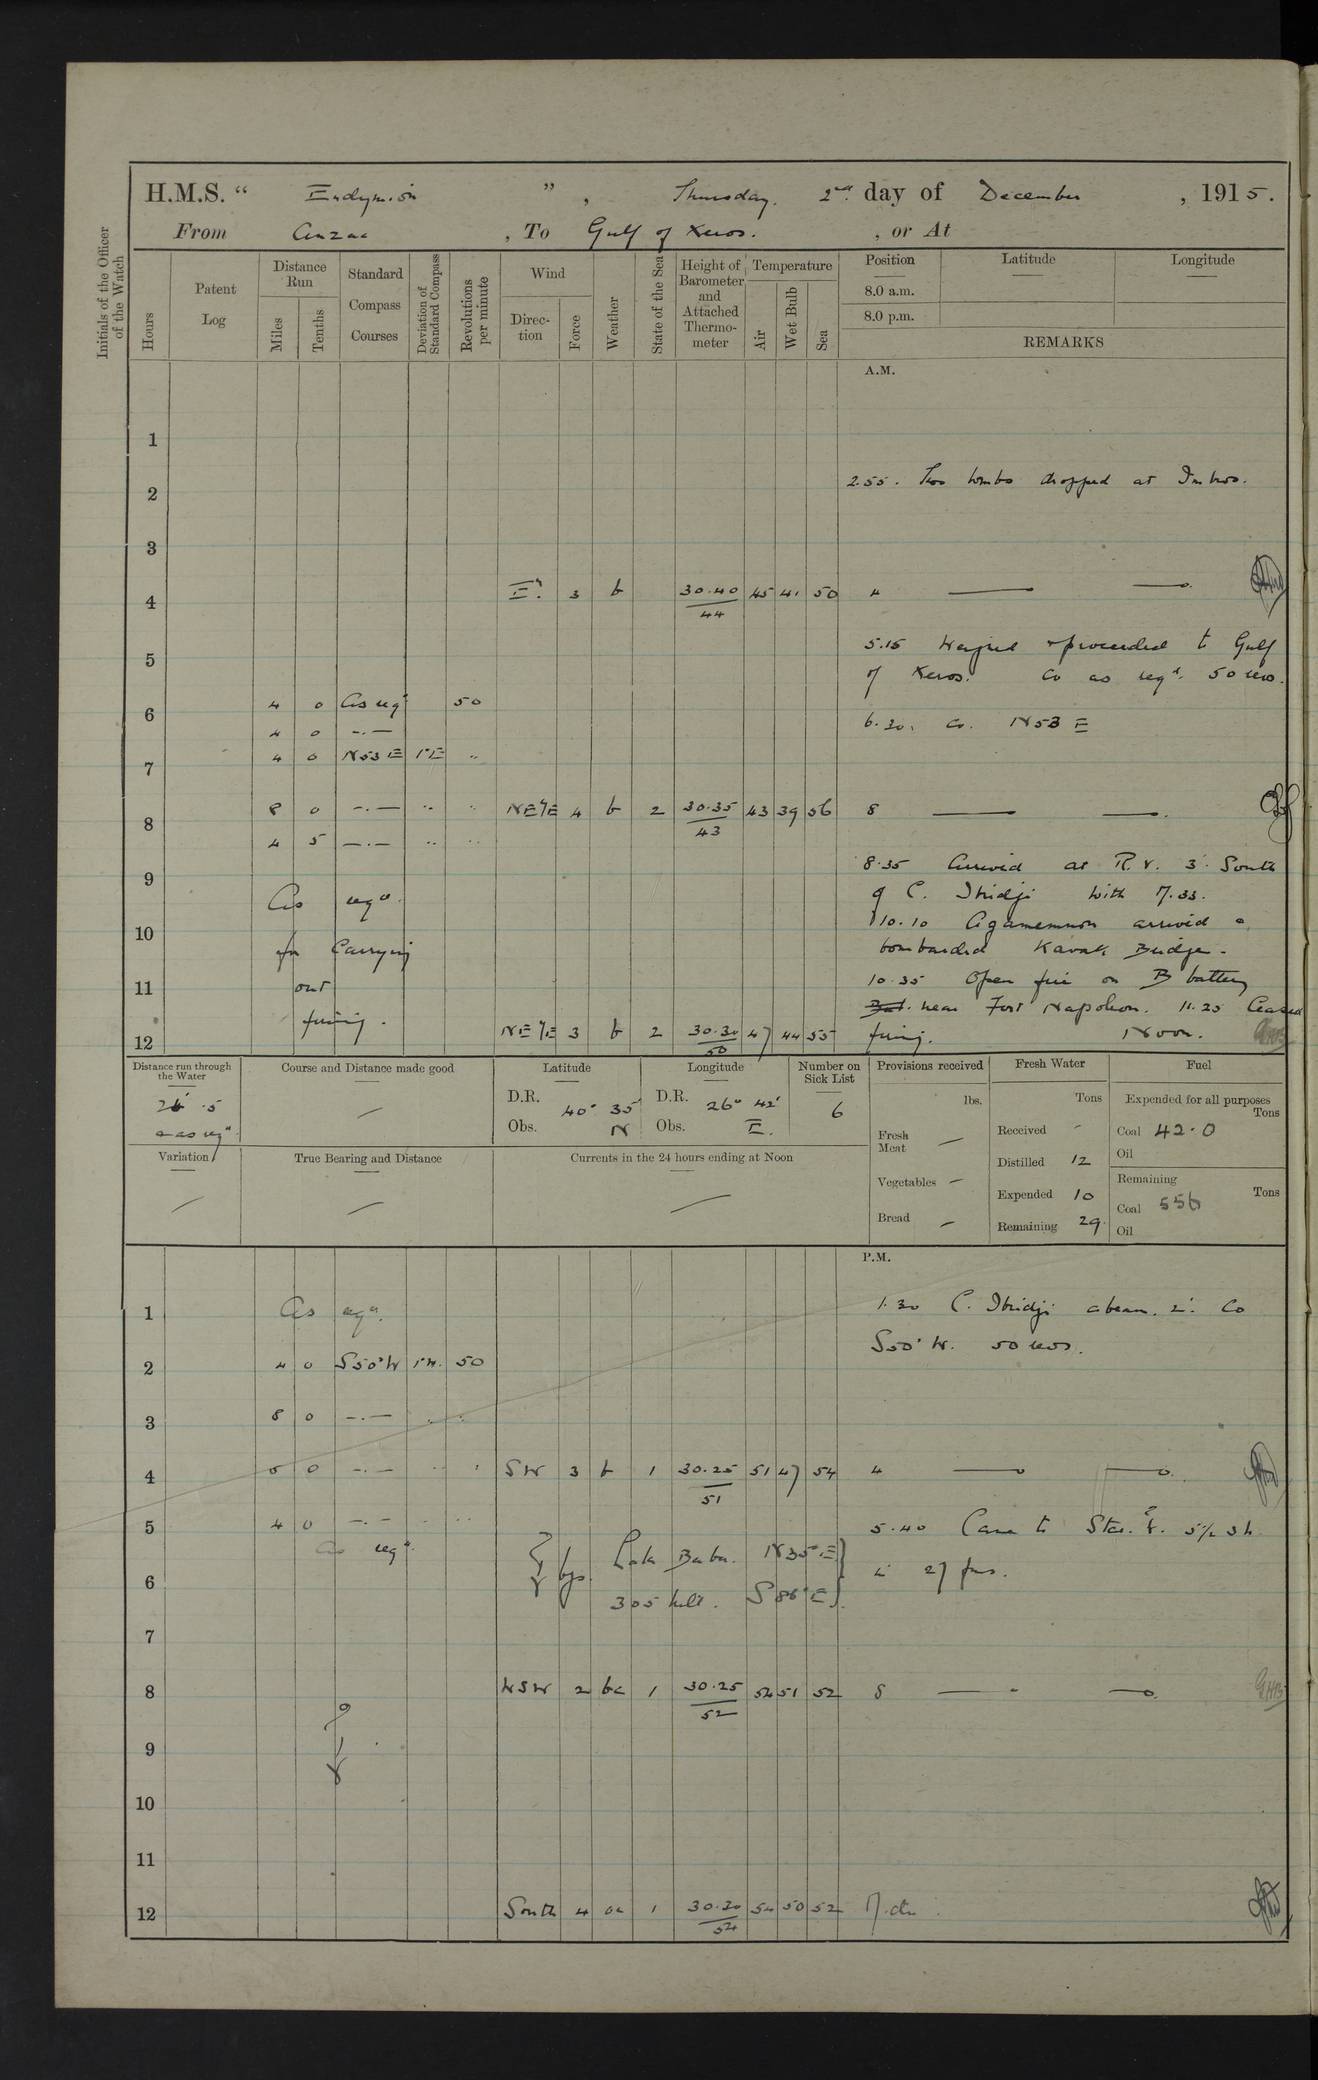 H.M.S. “ Endymion ” , Thursday. 2nd day of December , 1915.
From Anzac , To Gulf of Xeros. , or At
Initials of the Officer of the Watch
Hours
Patent Log
Distance Run
Miles
Tenths
Standard Compass Courses
Deviation of Standard Compass
Revolutions per minute
Wind
Direction
Force
Weather
State of the Sea
Height of Barometer and Attached Thermometer
Temperature
Air
Wet Bulb
Sea
Position
Latitude
Longitude
8.0 a.m.
8.0 p.m.
REMARKS
A.M.
1
2.55. Two bombs dropped at Imbros.
2
3
4 Ely. 3 b 30.40 / 44 45 41 50 4 —
5.15 Weighed & proceeded to Gulf
5
of Xeros. Co as reqd. 50 revs.
4 0 As reqd 50
6
6.30. Co. N53 E
4 0 -.-
4 0 N53 E 1°E ..
7
8 8 0 -.- .. .. NE/E 4 b 2 30.35 / 43 43 39 56 8 —
4 5 -.- .. ..
8.35 Arrived at R.V. 3' South
9
of C. Ibridji with M.33.
As reqd.
10.10 Agamemnon arrived &
10
for Carrying
bombarded Kavak Bridge.
out
10.35 Open fire on B battery
11
near Fort Napoleon. 11.25 Ceased
firing.
12 NE/E 3 b 2 30.30 / 50 47 44 55 firing. Noon.
Distance run through the Water
Course and Distance made good
Latitude
Longitude
Number on Sick List
Provisions received
Fresh Water
Fuel
.5
& as reqd.
D.R. 40° 35'
Obs. N
D.R. 26° 42'
Obs. E.
6
lbs.
Tons
Expended for all purposes
Tons
Fresh Meat —
Received -
Coal 42.0
Oil
Variation
True Bearing and Distance
Currents in the 24 hours ending at Noon
Distilled 12
Vegetables —
Expended 10
Remaining
Tons
Coal 556
Bread —
Remaining 29.
Oil
P.M.
1 As reqd.
1.30 C. Ibridji abeam. 2'. Co
S50°W. 50 revs.
2 4 0 S50°W 1°W. 50
3 8 0 -.- .. ..
4 0 -.- .. .. SW 3 b 1 30.25 / 51 51 47 54 4 —
5 4 0 -.- .. ..
5.40 Came to Star. 5½ sh
As reqd.
bgs. Baba. N35°E
305 hill. S86°E
in 27 fms.
6
7
8 WSW 2 bc 1 30.25 / 52 54 51 52 8 —
9
10
11
12 South 4 oc 1 30.20 / 54 54 50 52 Mdt.